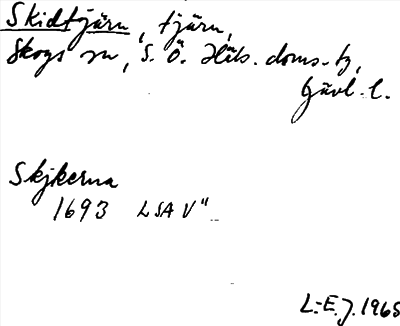 Skidtjärn, tjärn,
Skogs sn, S. Ö. Häls. doms.-tg,
Gävl. l.
Skjkerna
1693 LSA V"
L-E.J. 1965